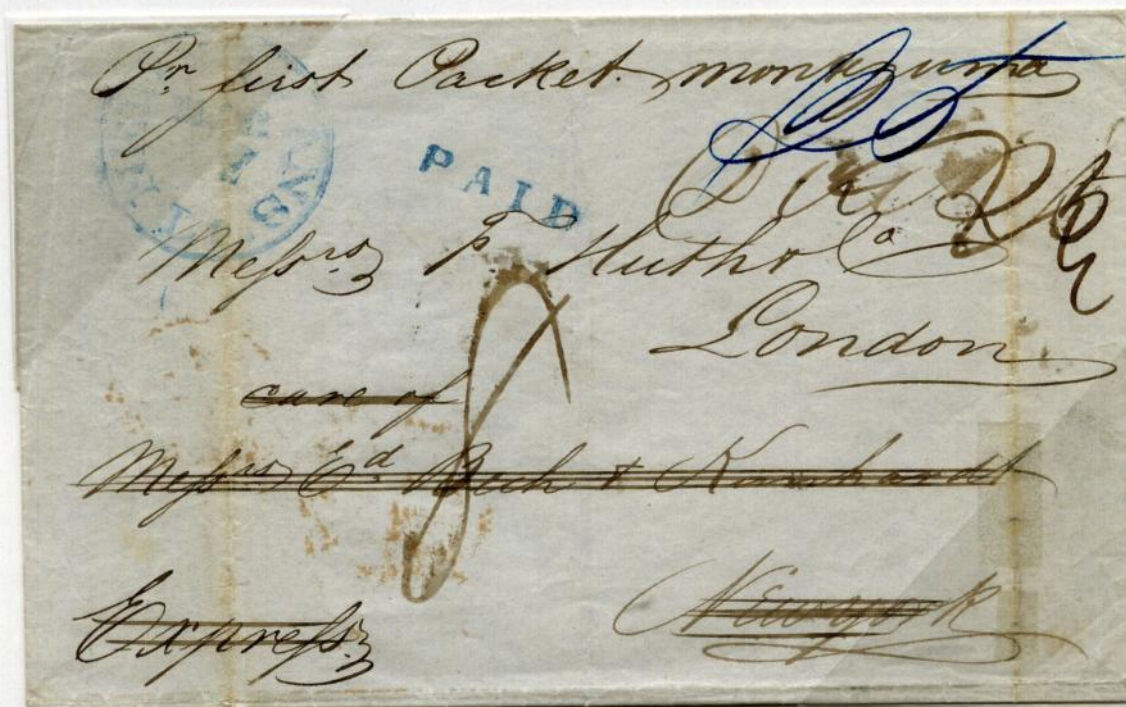 Pr. first Packet montezuma
PAID
Paid
Messrs F. Huth & Co
London
8
care of
Messrs Ed. Bech & Kunhardt
Express
Newyork